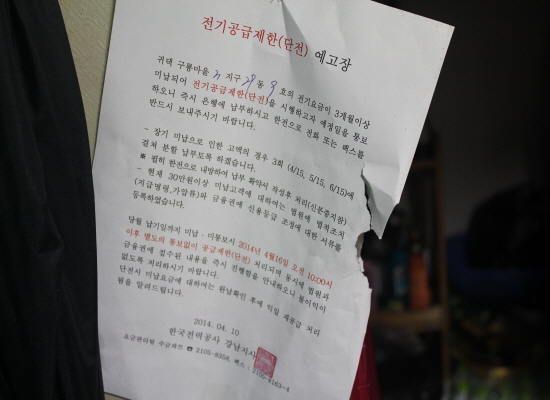 전기공급제한(단전) 예고장
귀댁 구룡마을 지구 동 호의 전기요금이 3개월이상
미납되어 전기공급제한(단전)을 시행하고자 예정일을 통보
하오니 즉시 은행에 납부하시고 한전으로 전화 또는 팩스를
반드시 보내주시기 바랍니다.
- 장기 미납으로 인한 고액의 경우 3회 (4/15, 5/15, 6/15)에
걸쳐 분할 납부토록 하겠습니다.
※ 필히 한전으로 내방하여 납부 확약서 작성후 처리(신분증지참)
- 현재 30만원이상 미납고객에 대하여는 법원에 법적조치
(지급명령,가압류)와 금융권에 신용등급 조정에 대한 서류를
등록하였습니다.
당월 납기일까지 미납ㆍ미통보시 2014년 4월16일 오전 10:00시
이후 별도의 통보없이 공급제한(단전) 처리되며 동시에 법원과
금융권에 접수된 내용을 즉시 진행함을 안내하오니 불이익이
없도록 처리하시기 바랍니다.
단전시 미납요금에 대하여는 완납확인 후에 익일 재공급 처리
됨을 알려드립니다.
2014. 04. 10
한국전력공사 강남지사
요금관리팀 수금파트 ☎ 2105-8358, 팩스 : 2105-8163~4